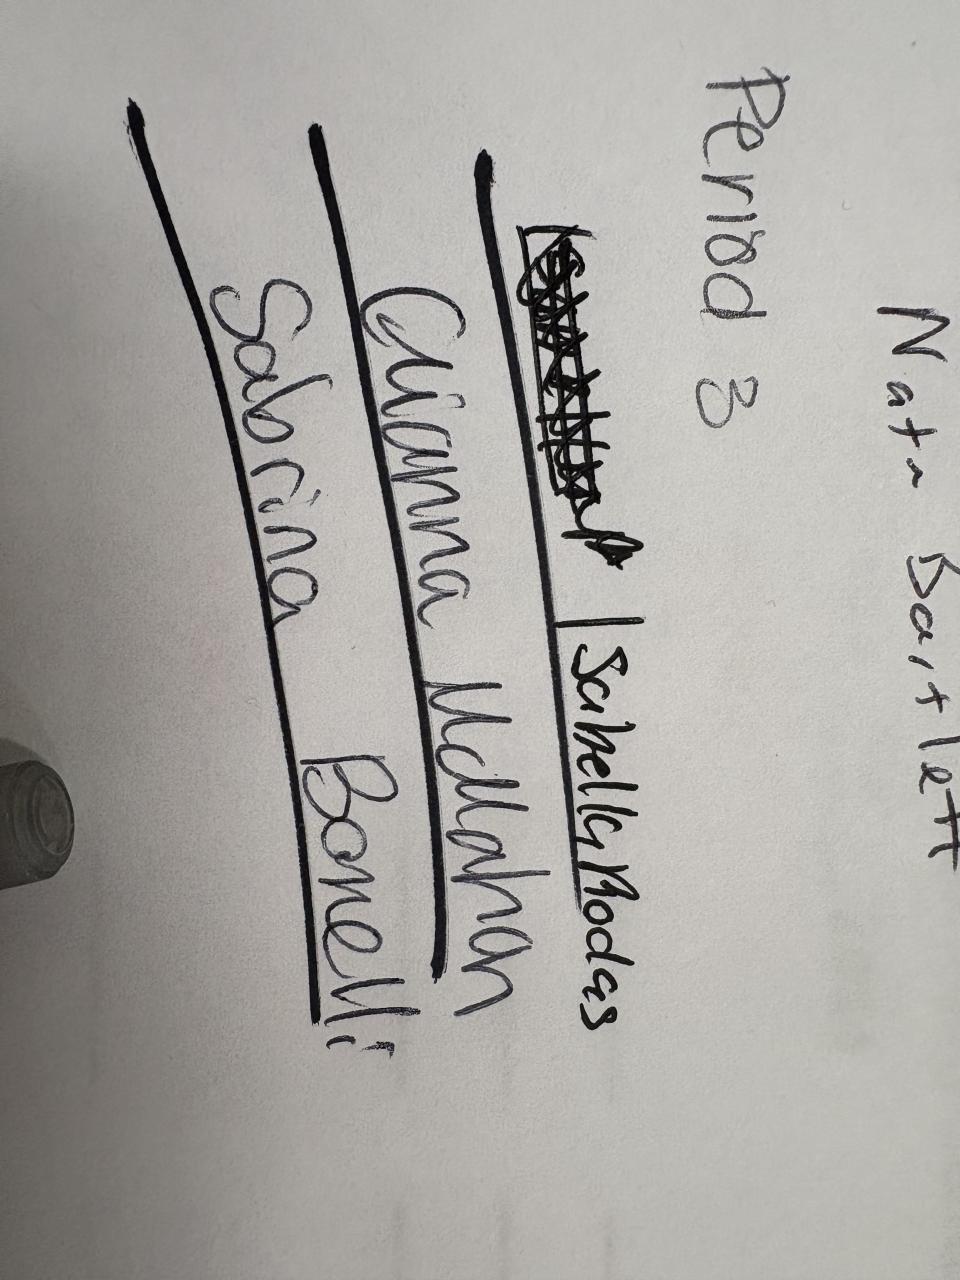 Nate Bartlett
Period 3
Isabella Modas
Gianna McMahon
Sabrina Bonelli